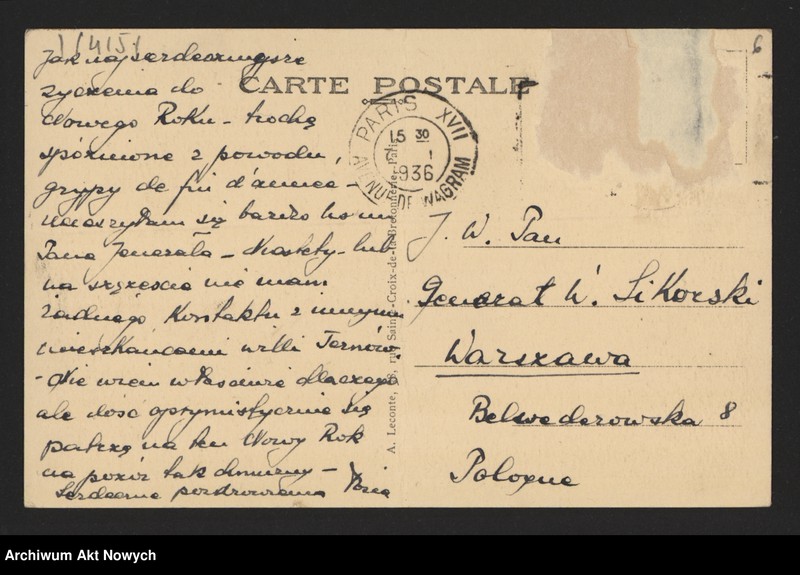 Jak najserdeczniejsze
życzenia do
Nowego Roku - trochę
spóźnione z powodu
grypy de fin d'année -
się bardzo
Pana Jenerała - Niestety - lub
na szczęście nie mam
żadnego kontaktu z innymi
mieszkańcami willi
- Nie wiem właściwie dlaczego
ale dość optymistycznie się
patrzę na ten Nowy Rok
na pozór tak chmurny -
Serdeczne pozdrowienia
CARTE POSTALE
PARIS XVII
15 30
1936
AVENUE DE WAGRAM
A. Leconte, 38, rue Sainte-Croix-de-la-Bretonnerie, Paris
6
J. W. Pan
Generał W. Sikorski
Warszawa
Belwederowska 8
Pologne
Archiwum Akt Nowych